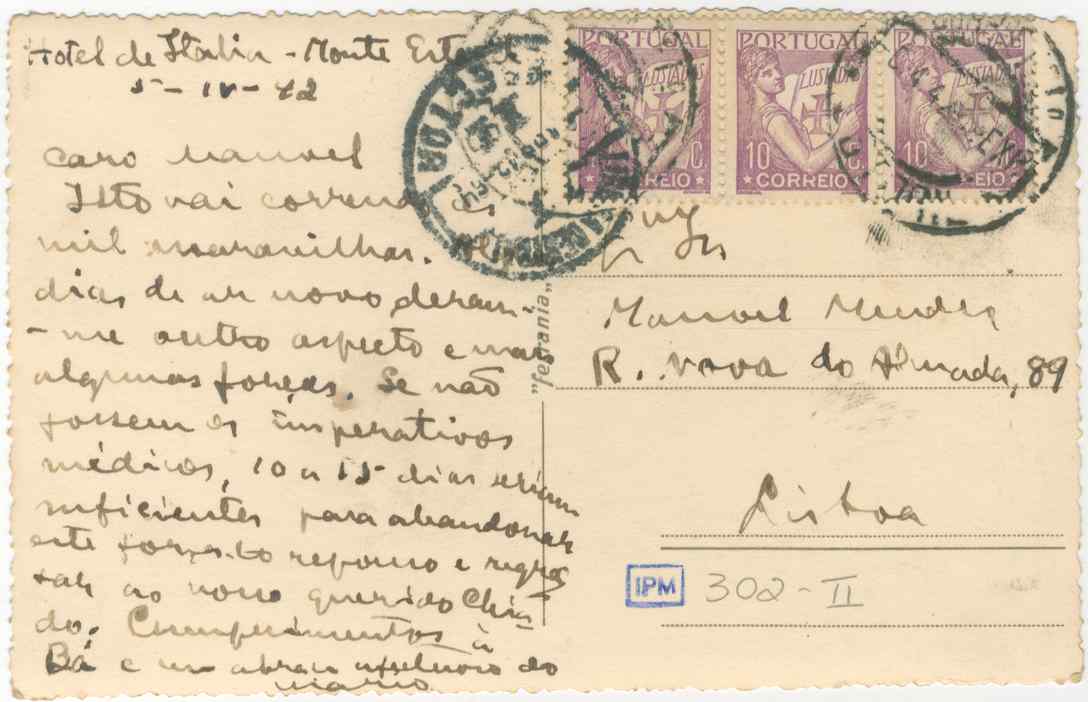 Hotel de Italia - Monte Estoril
5 - IV - 42
caro Manuel
Isto vai correndo às
mil maravilhas. Alguns
dias de ar novo deram-
-me outro aspecto e mais
algumas forças. Se não
fossem os imperativos
médicos, 10 a 15 dias seriam
suficientes para abandonar
este forçado repouso e regres
sar ao nosso querido Chia-
do. Cumprimentos à
Bá e um abraço afectuoso do
Mário
"ferrania"
PORTUGAL PORTUGAL PORTUGAL
LUSIADAS LUSIADAS LUSIADAS
C. 10 C. 10
CORREIO CORREIO CORREIO
Manuel Mendes
R. Nova do Almada, 89
Lisboa
IPM 302-II